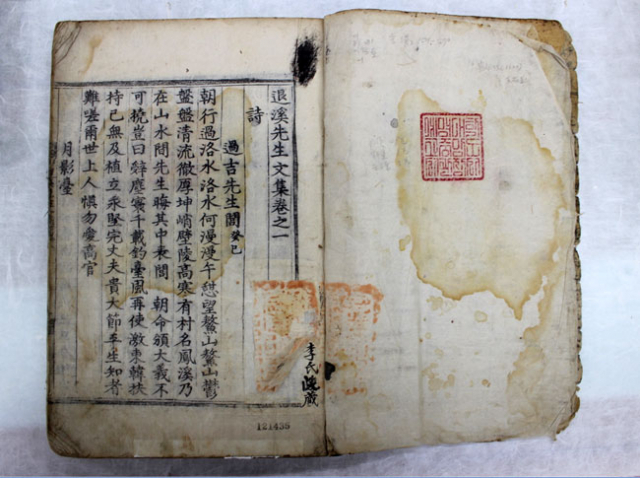 退溪先生文集卷之一
詩
過吉先生閭 癸巳
朝行過洛水洛水何漫漫午憩望鰲山鰲山鬱
盤盤清流徹厚坤峭壁陵高寒有村名鳳溪乃
在山水間先生晦其中表閭 朝命頒大義不
可撓豈曰辭塵寰千載釣臺風再使激東韓扶
持已無及植立永堅完丈夫貴大節平生知者
難嗟爾世上人愼勿愛高官
月影臺
李氏 藏
121438